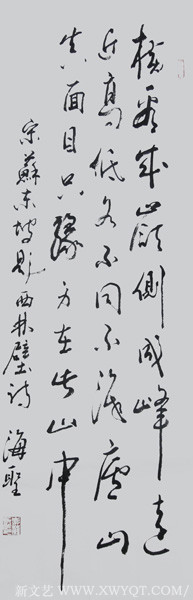 横看成岭側成峰遠
近高低各不同不識廬山
真面目只緣身在此山中
宋蘇東坡題西林壁詩 海聖
新文艺/WWW.XWYQT.COM/